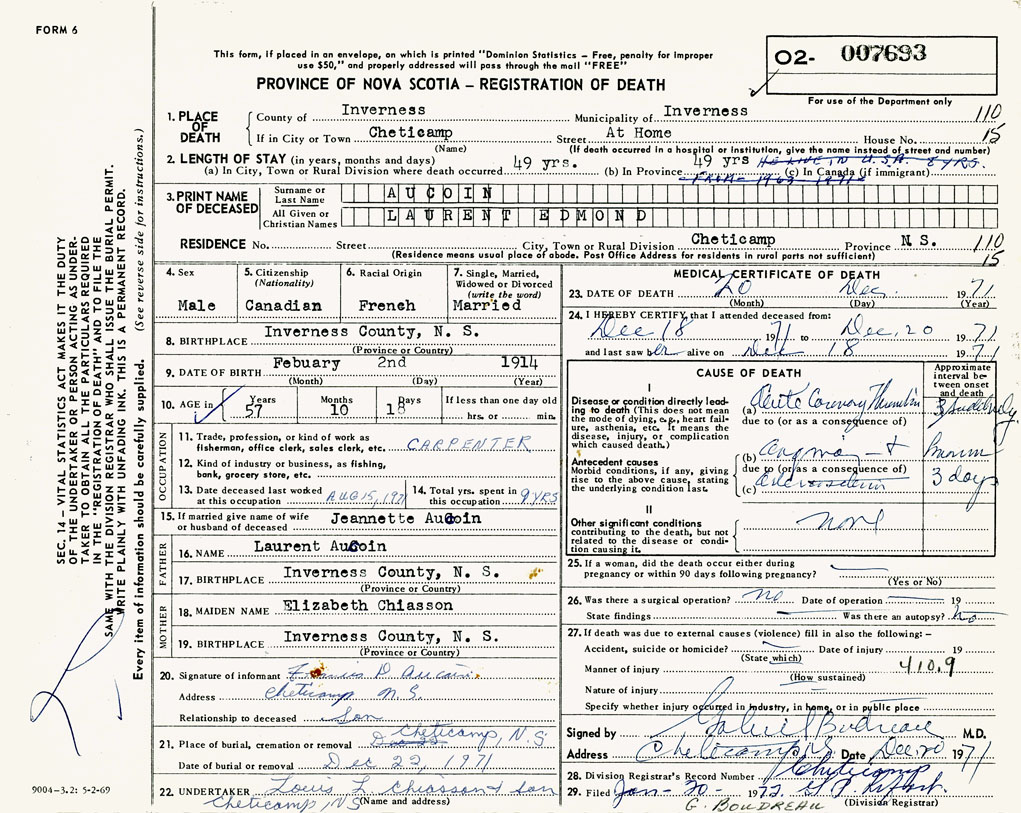 FORM 6
This form, if placed in an envelope, on which is printed "Dominion Statistics – Free, penalty for improper
use $50," and properly addressed will pass through the mail "FREE"
02- 007693
For use of the Department only
PROVINCE OF NOVA SCOTIA – REGISTRATION OF DEATH
1. PLACE OF DEATH
County of Inverness Municipality of Inverness 110
If in City or Town Cheticamp Street At Home House No. 15
(Name) (If death occurred in a hospital or institution, give the name instead of street and number)
2. LENGTH OF STAY (in years, months and days)
49 yrs. 49 yrs HE LIVE IN U.S.A. 8 YRS.
(a) In City, Town or Rural Division where death occurred (b) In Province (c) In Canada (if immigrant)
FROM 1963 1971
3. PRINT NAME OF DECEASED
Surname or Last Name AUCOIN
All Given or Christian Names LAURENT EDMOND
RESIDENCE No. Street City, Town or Rural Division Cheticamp Province N.S. 110
(Residence means usual place of abode. Post Office Address for residents in rural parts not sufficient) 15
4. Sex
Male
5. Citizenship
(Nationality)
Canadian
6. Racial Origin
French
7. Single, Married,
Widowed or Divorced
(write the word)
Married
8. BIRTHPLACE Inverness County, N. S.
(Province or Country)
9. DATE OF BIRTH Febuary 2nd 1914
(Month) (Day) (Year)
10. AGE in
Years 57
Months 10
Days 18
If less than one day old
hrs. or min.
OCCUPATION
11. Trade, profession, or kind of work as
fisherman, office clerk, sales clerk, etc. CARPENTER
12. Kind of industry or business, as fishing,
bank, grocery store, etc.
13. Date deceased last worked
at this occupation AUG 15, 197
14. Total yrs. spent in
this occupation 9 YRS
15. If married give name of wife
or husband of deceased Jeannette Aucoin
FATHER
16. NAME Laurent Aucoin
17. BIRTHPLACE Inverness County, N. S.
(Province or Country)
MOTHER
18. MAIDEN NAME Elizabeth Chiasson
19. BIRTHPLACE Inverness County, N. S.
(Province or Country)
20. Signature of informant Francis D Aucoin
Address Cheticamp N.S.
Relationship to deceased Son
21. Place of burial, cremation or removal Cheticamp, N.S
Date of burial or removal Dec 22, 1971
22. UNDERTAKER Louis L Chiasson & Son
Cheticamp, NS (Name and address)
MEDICAL CERTIFICATE OF DEATH
23. DATE OF DEATH 20 Dec. 1971
(Month) (Day) (Year)
24. I HEREBY CERTIFY, that I attended deceased from:
Dec 18 1971 to Dec, 20 1971
and last saw h alive on Dec 18 1971
CAUSE OF DEATH
Approximate interval between onset and death
I
Disease or condition directly leading to death (This does not mean the mode of dying, e.g., heart failure, asthenia, etc. It means the disease, injury, or complication which caused death.)
(a) Acute Coronary
due to (or as a consequence of)
Antecedent causes
Morbid conditions, if any, giving rise to the above cause, stating the underlying condition last.
(b)
due to (or as a consequence of)
(c)
3 days
II
Other significant conditions
contributing to the death, but not related to the disease or condition causing it.
none
25. If a woman, did the death occur either during
pregnancy or within 90 days following pregnancy?
(Yes or No)
26. Was there a surgical operation? no Date of operation 19
State findings Was there an autopsy? no
27. If death was due to external causes (violence) fill in also the following: –
Accident, suicide or homicide? Date of injury 19
(State which)
Manner of injury 410.9
(How sustained)
Nature of injury
Specify whether injury occurred in industry, in home, or in public place
Signed by Gabriel Boudreau M.D.
Address Cheticamp NS Date Dec. 20 1971
28. Division Registrar's Record Number Cheticamp
29. Filed Jan - 20 - 1972
G. BOUDREAU (Division Registrar)
SEC. 14 – VITAL STATISTICS ACT MAKES IT THE DUTY
OF THE UNDERTAKER OR PERSON ACTING AS UNDER-
TAKER TO OBTAIN ALL THE PARTICULARS REQUIRED
IN THE "REGISTRATION OF DEATH" AND TO FILE THE
SAME WITH THE DIVISION REGISTRAR WHO SHALL ISSUE THE BURIAL PERMIT.
WRITE PLAINLY WITH UNFADING INK. THIS IS A PERMANENT RECORD.
Every item of information should be carefully supplied. (See reverse side for instructions.)
9004-3.2: 5-2-69